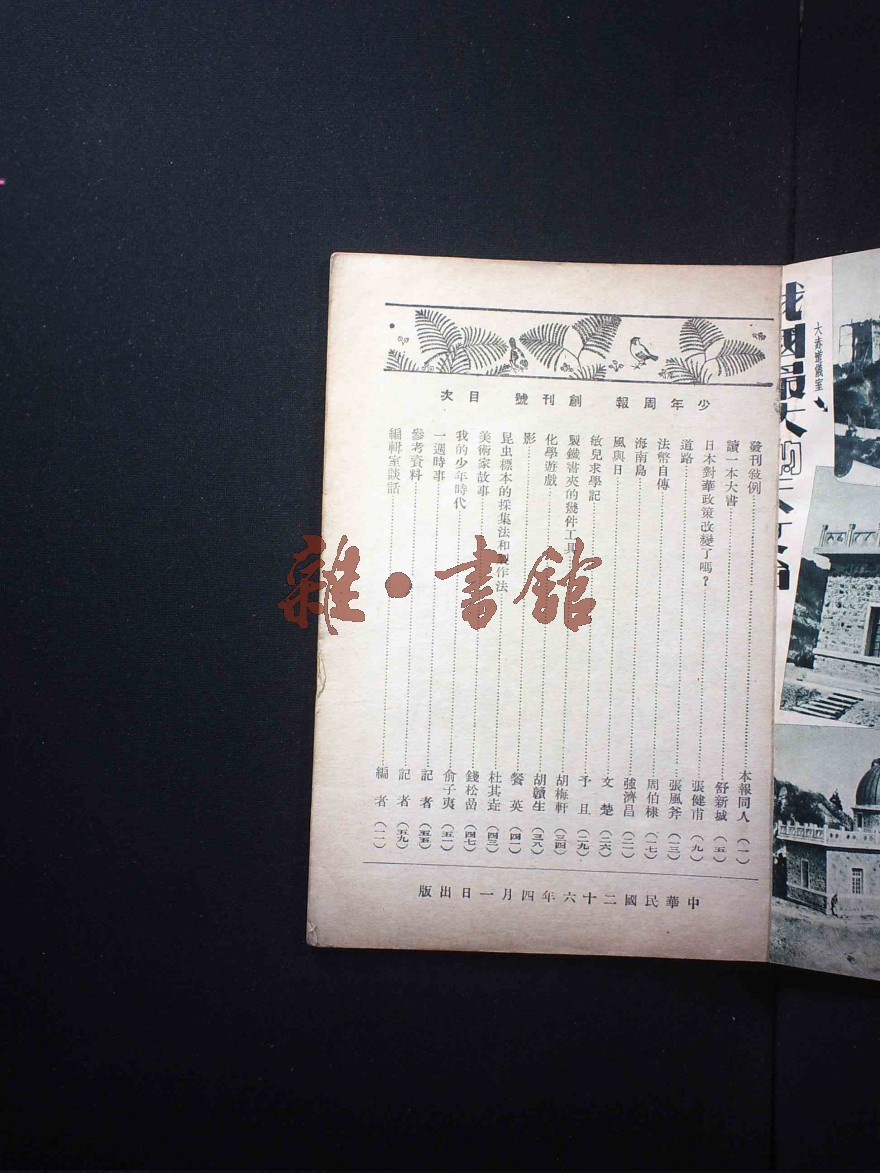 少年周報 創刊號 目次
發刊敍例……本報同人(一)
讀一本大書……舒新城(五)
日本對華政策改變了嗎?……張健甫(九)
道路……張風斧(一三)
法幣自傳……周伯棣(一七)
海南島……強濟昌(二一)
風與日……文楚(二六)
敏兒求學記……予且(二九)
製鐵書夾的幾件工具……胡梅軒(三四)
化學遊戲……胡贛生(三八)
影……餐英(四一)
昆虫標本的採集法和製作法……杜其垚(四三)
美術家故事……錢松嵒(四七)
我的少年時代……俞子夷(五一)
一週時事……記者(五五)
參考資料……記者(五九)
編輯室談話……編者(一一)
中華民國二十六年四月一日出版
大赤道儀室
雜·書館